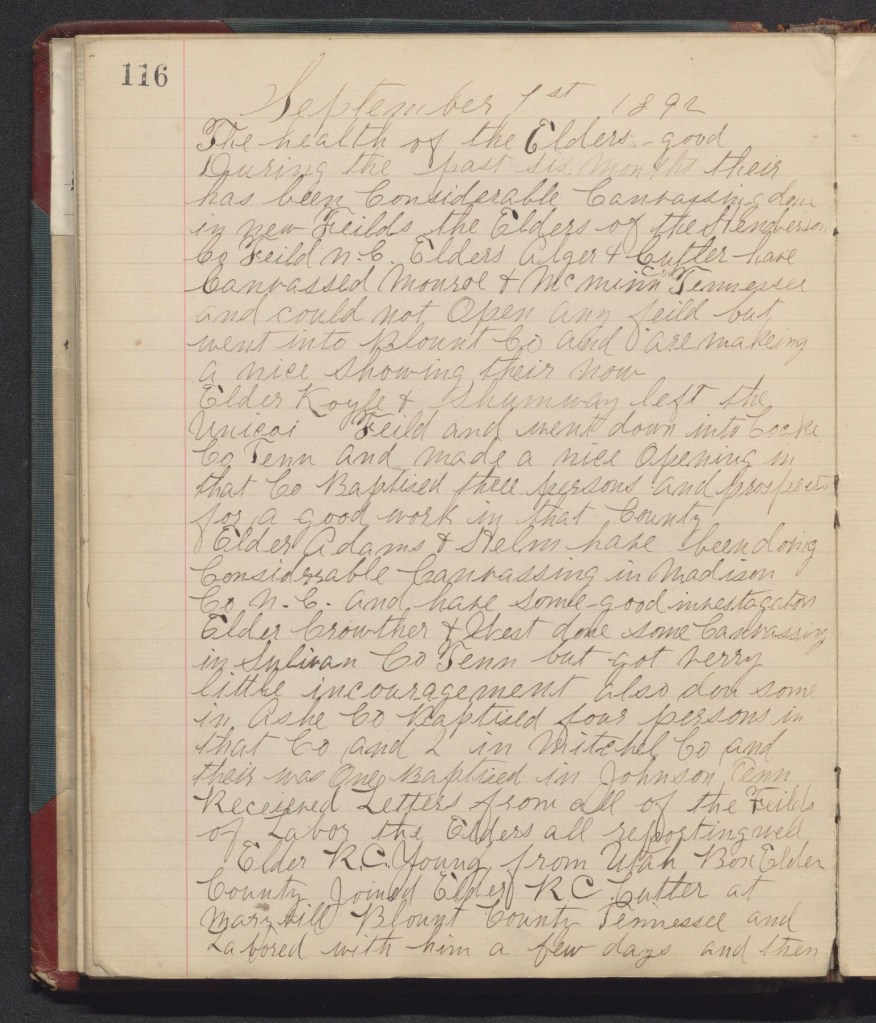 116
September 1st 1892
The health of the Elders - good
During the past six months their
has been Considerable Canvassing done
in new Feilds the Elders of the Henderson
Co Feild N.C. Elders Alger & Cutler have
Canvassed Monroe & McMinn Co Tennessee
and could not Open any feild but
went into Blount Co and are makeing
a nice showing their now
Elder Koyle & Shumway left the
Unicoi Feild and went down into Cocke
Co Tenn and made a nice Opening in
that Co Baptised three persons and prospects
for a good work in that County
Elder Adams & Helm have been doing
Considerable Canvassing in Madison
Co N.C. and have some good investagators
Elder Crowther & West done some Canvassing
in Sulivan Co Tenn but got verry
little incouragement also don some
in Ashe Co Baptised four persons in
that Co and 2 in Mitchel Co and
their was One Baptised in Johnson Tenn
Receieved Letters from all of the Feilds
of Labor the Elders all reporting well
Elder R.C. Young from Utah Box Elder
County Joined Elder R C Cutler at
Maryvill Blount County Tennessee and
Labored with him a few days and then